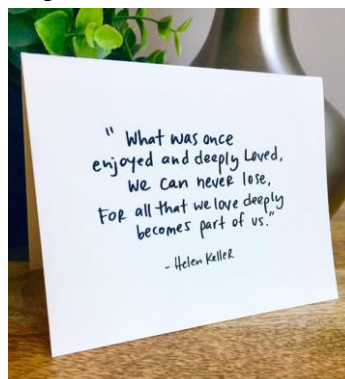 " What was once
enjoyed and deeply Loved,
we can never lose,
For all that we love deeply
becomes part of us."
- Helen Keller